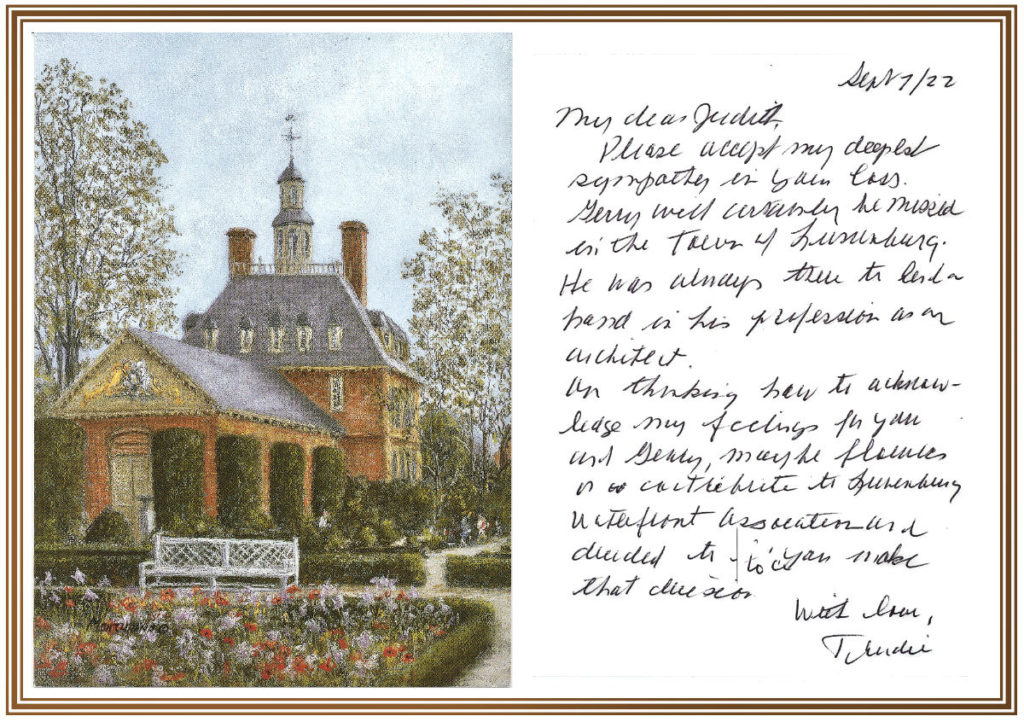 Sept 7/22
My dear Judith,
Please accept my deepest
sympathy in your loss.
Gerry will certainly be missed
in the Town of Lunenburg.
He was always there to lend a
hand in his profession as an
architect.
On thinking how to acknow-
ledge my feelings for you
and Gerry, maybe flowers
or contribute to Lunenburg
Waterfront Association and
decided to you make
that decision
With love,
Trudie